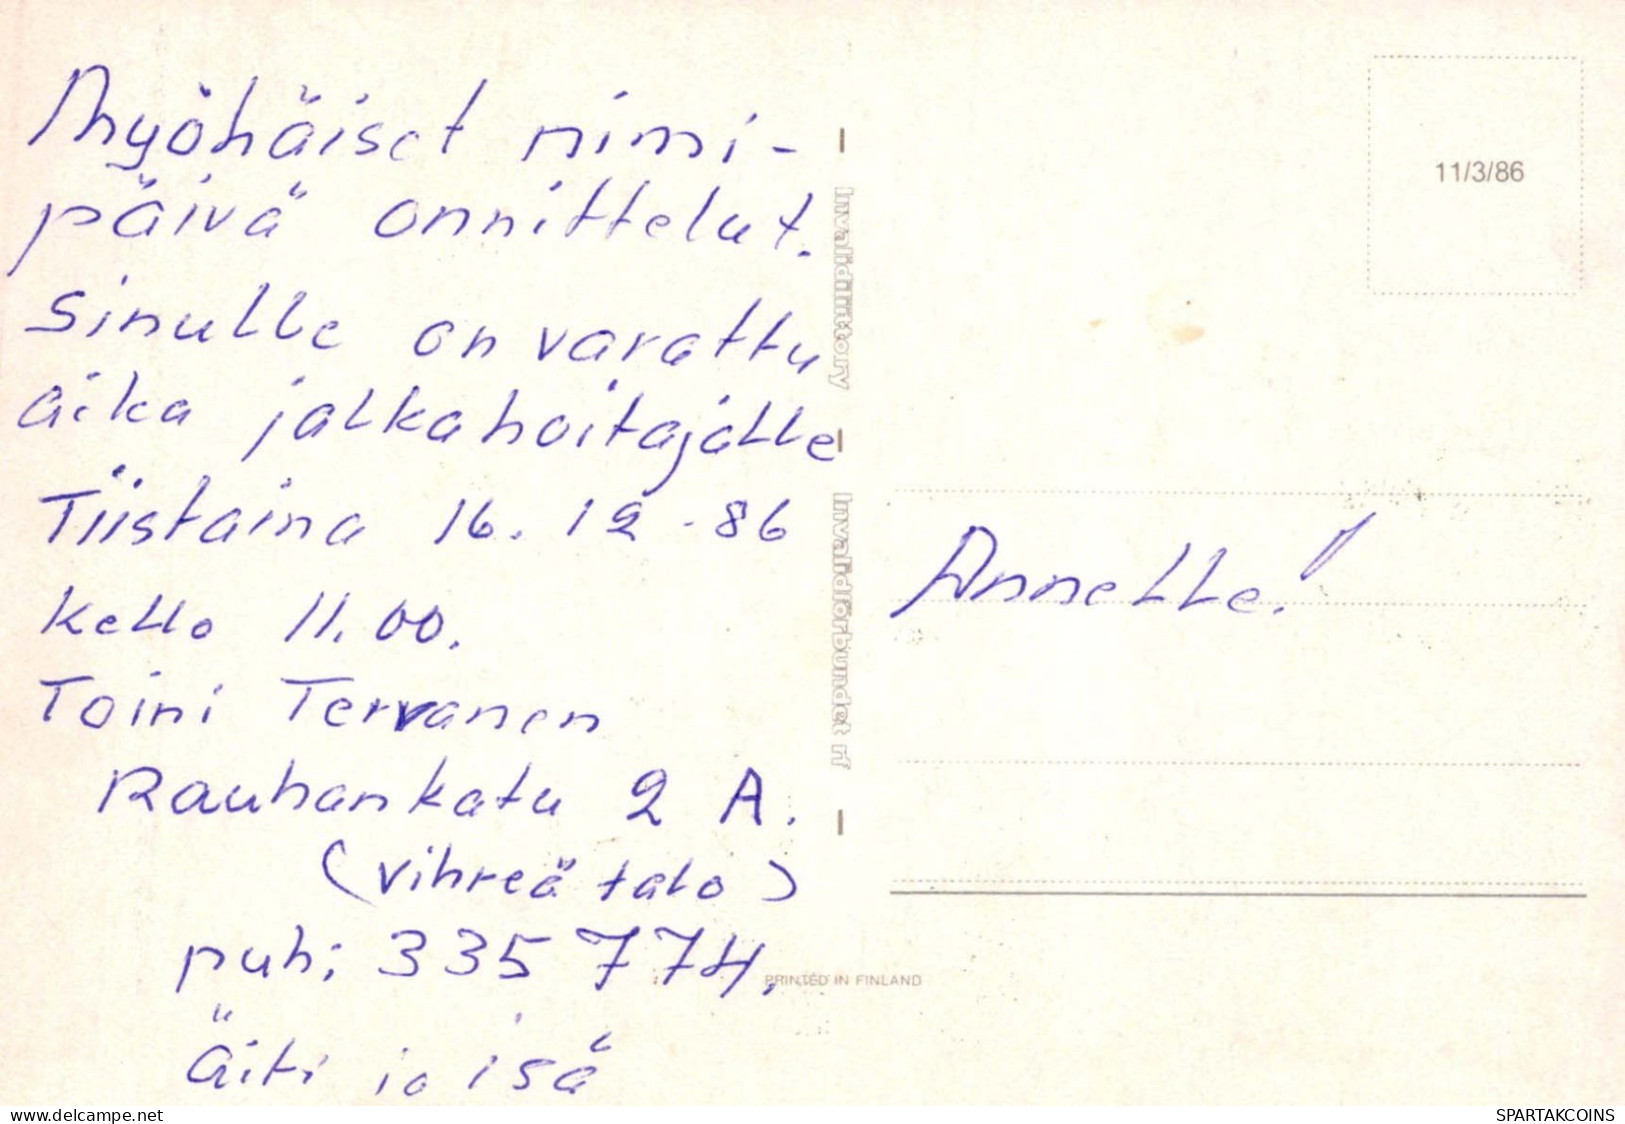 Myöhäiset nimi-
päivä onnittelut.
Sinulle on varattu
aika jalkahoitajalle
Tiistaina 16.12.86
kello 11.00.
Toini Tervanen
Rauhankatu 2 A.
(vihreä talo)
puh; 335 774.
äiti ja isä
Invalidiliitto ry
Invalidförbundet rf
11/3/86
Annelle!
PRINTED IN FINLAND
www.delcampe.net
SPARTAKCOINS